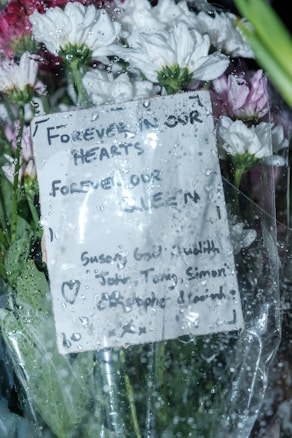 FOREVER IN OUR
HEARTS
FOREVER OUR
QUEEN
Susan, Judith
John, Tony, Simon
xx